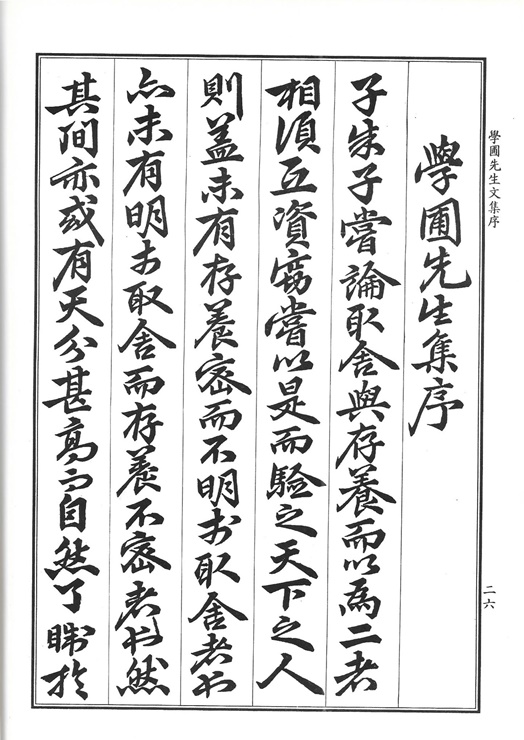 學圃先生文集序
學圃先生集序
子朱子嘗論取舍與存養而以爲二者
相須互資竊嘗以是而驗之天下之人
則盖未有存養密而不明於取舍者也
亦未有明於取舍而存養不密者也然
其間亦或有天分甚高而自然了於
二六